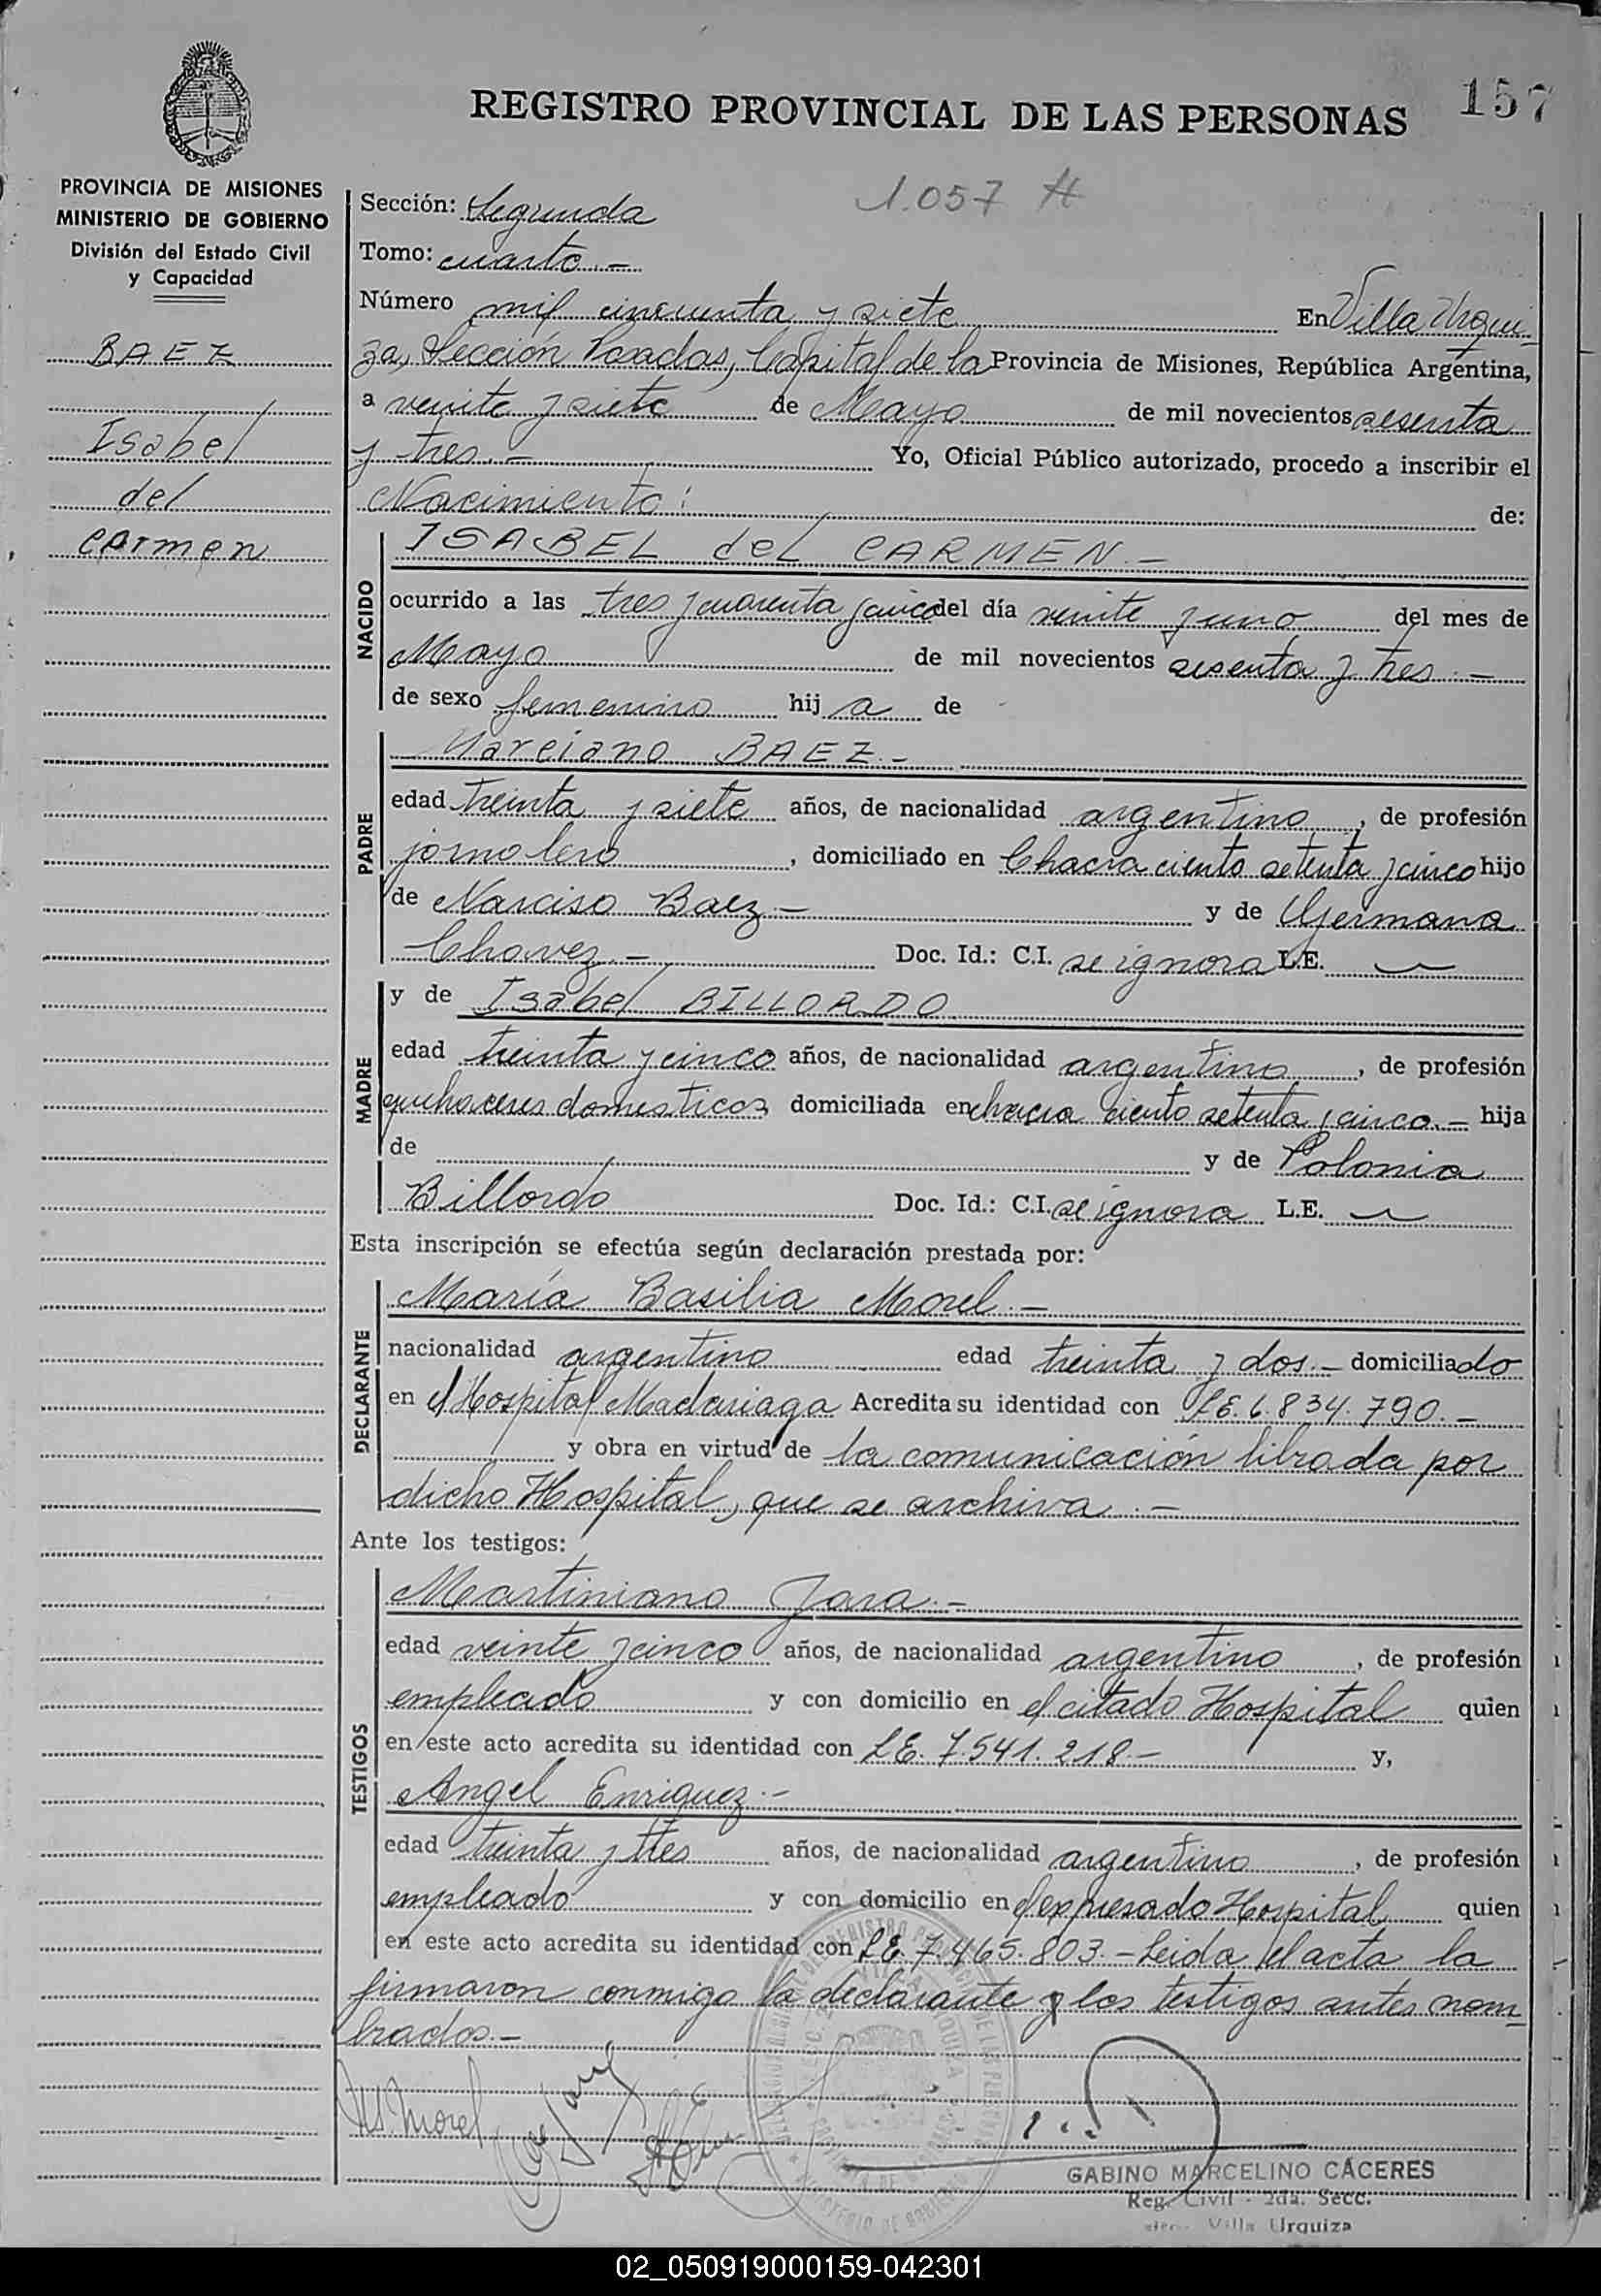 REGISTRO PROVINCIAL DE LAS PERSONAS
157
PROVINCIA DE MISIONES
MINISTERIO DE GOBIERNO
División del Estado Civil
y Capacidad
BAEZ
Isabel
del
Carmen
1.057
Sección: Segunda
Tomo: cuarto.-
Número mil cincuenta y siete En Villa Urqui-
za, Sección Posadas, Capital de la Provincia de Misiones, República Argentina,
a veinte y siete de Mayo de mil novecientos sesenta
y tres.- Yo, Oficial Público autorizado, procedo a inscribir el
Nacimiento: de:
NACIDO
ISABEL del CARMEN.-
ocurrido a las tres y cuarenta y cinco del día veinte y uno del mes de
Mayo de mil novecientos sesenta y tres.-
de sexo femenino hij a de
PADRE
Marciano BAEZ.-
edad treinta y siete años, de nacionalidad argentino, de profesión
jornalero, domiciliado en Chacra ciento setenta y cinco hijo
de Narciso Baez.- y de Germana
Chavez.- Doc. Id.: C.I. se ignora L.E.
MADRE
y de Isabel BILLORDO
edad treinta y cinco años, de nacionalidad argentina, de profesión
quehaceres domesticos domiciliada en chacra ciento setenta y cinco.- hija
de y de Polonia
Billordo Doc. Id.: C.I. se ignora L.E.
Esta inscripción se efectúa según declaración prestada por:
DECLARANTE
María Basilia Morel.-
nacionalidad argentina edad treinta y dos.- domiciliado
en el Hospital Madariaga Acredita su identidad con LE. 6.834.790.-
y obra en virtud de la comunicación librada por
dicho Hospital, que se archiva.-
Ante los testigos:
TESTIGOS
Martiniano Jara.-
edad veinte y cinco años, de nacionalidad argentino, de profesión
empleado y con domicilio en el citado Hospital quien
en este acto acredita su identidad con LE. 7.541.218.- y,
Angel Enriquez.-
edad treinta y tres años, de nacionalidad argentino, de profesión
empleado y con domicilio en el expresado Hospital quien
en este acto acredita su identidad con LE. 7.465.803.- Leida el acta la
firmaron conmigo la declarante y los testigos antes nom
brados.-
Morel
GABINO MARCELINO CÁCERES
Reg. Civil - 2da. Secc.
Villa Urquiza
02_050919000159-042301